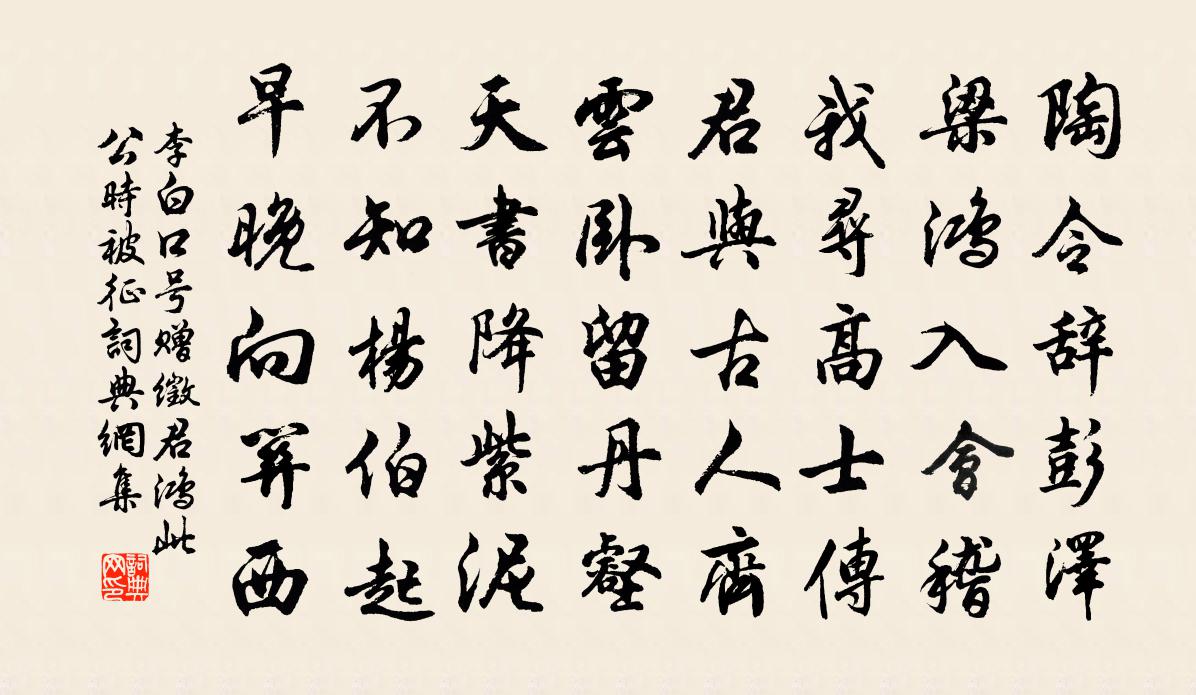 陶令辞彭澤
梁鴻入會稽
我尋高士傳
君與古人齊
雲臥留丹壑
天書降紫泥
不知楊伯起
早晚向關西
李白口号贈徵君鴻此
公時被征詞典網集
詞典
网印